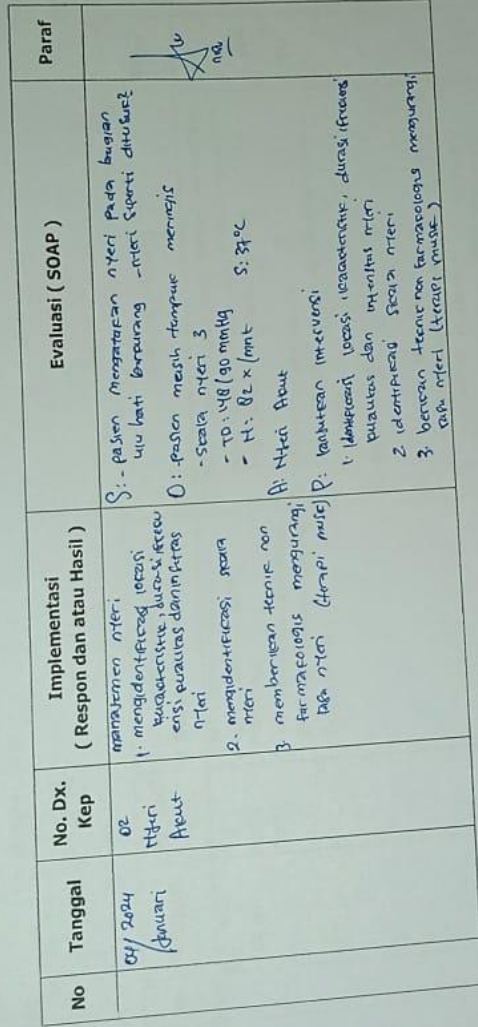 No
Tanggal
No. Dx.
Kep
Implementasi
( Respon dan atau Hasil )
Evaluasi ( SOAP )
Paraf
04/ 2024
/Januari
02
Nyeri
Akut
manajemen nyeri
1. mengidentifikasi lokasi
karakteristik, durasi frekue
ensi kualitas dan inifitas
nyeri
2. mengidentifikasi skala
nyeri
3. memberikan teknik non
farmakologis mengurangi
rasa nyeri (terapi musik)
S: - pasien mengatakan nyeri pada bagian
ulu hati berkurang - nyeri seperti ditusuk2
O: - pasien masih tampak meringis
- skala nyeri 3
- TD: 148/90 mmHg
- N: 82 x/mnt S: 37°C
A: Nyeri Akut
P: lanjutkan intervensi
1. Identifikasi lokasi, karakteristik, durasi, frekuensi
kualitas dan intensitas nyeri
2. identifikasi skala nyeri
3. berikan teknik non farmakologis mengurangi
rasa nyeri (terapi musik)